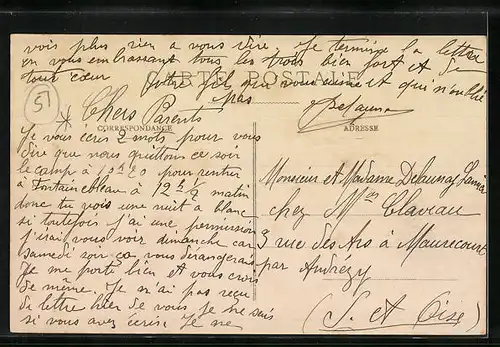 vois plus rien a vous dire. Je termine la lettre
en vous embrassant tous les trois bien fort et de
tout cœur votre fils qui vous aime et qui n'oublie
pas
Delaunay
CARTE POSTALE
51
Chers Parents
CORRESPONDANCE
ADRESSE
Je vous écris 2 mots pour vous
dire que nous quittons ce soir
le camp à pour rentrer
à Fontainebleau à matin
donc tu vois une nuit à blanc
si toutefois j'ai une permission
j'irai vous voir dimanche car
samedi soir ça vous dérangerais
Je me porte bien et vous crois
de même. Je n'ai pas reçu
de lettre hier de vous je ne sais
si vous avez écris. Je ne
Monsieur et Madame Delaunay
chez Mon Claveau
3 rue des Ars à Maurecourt
par Andrézy
(S. et Oise)